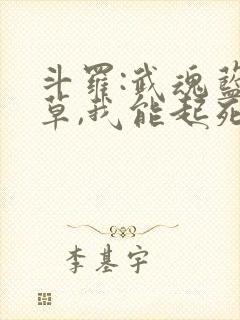 斗罗:武魂蓝
草,我能起死
李基宇